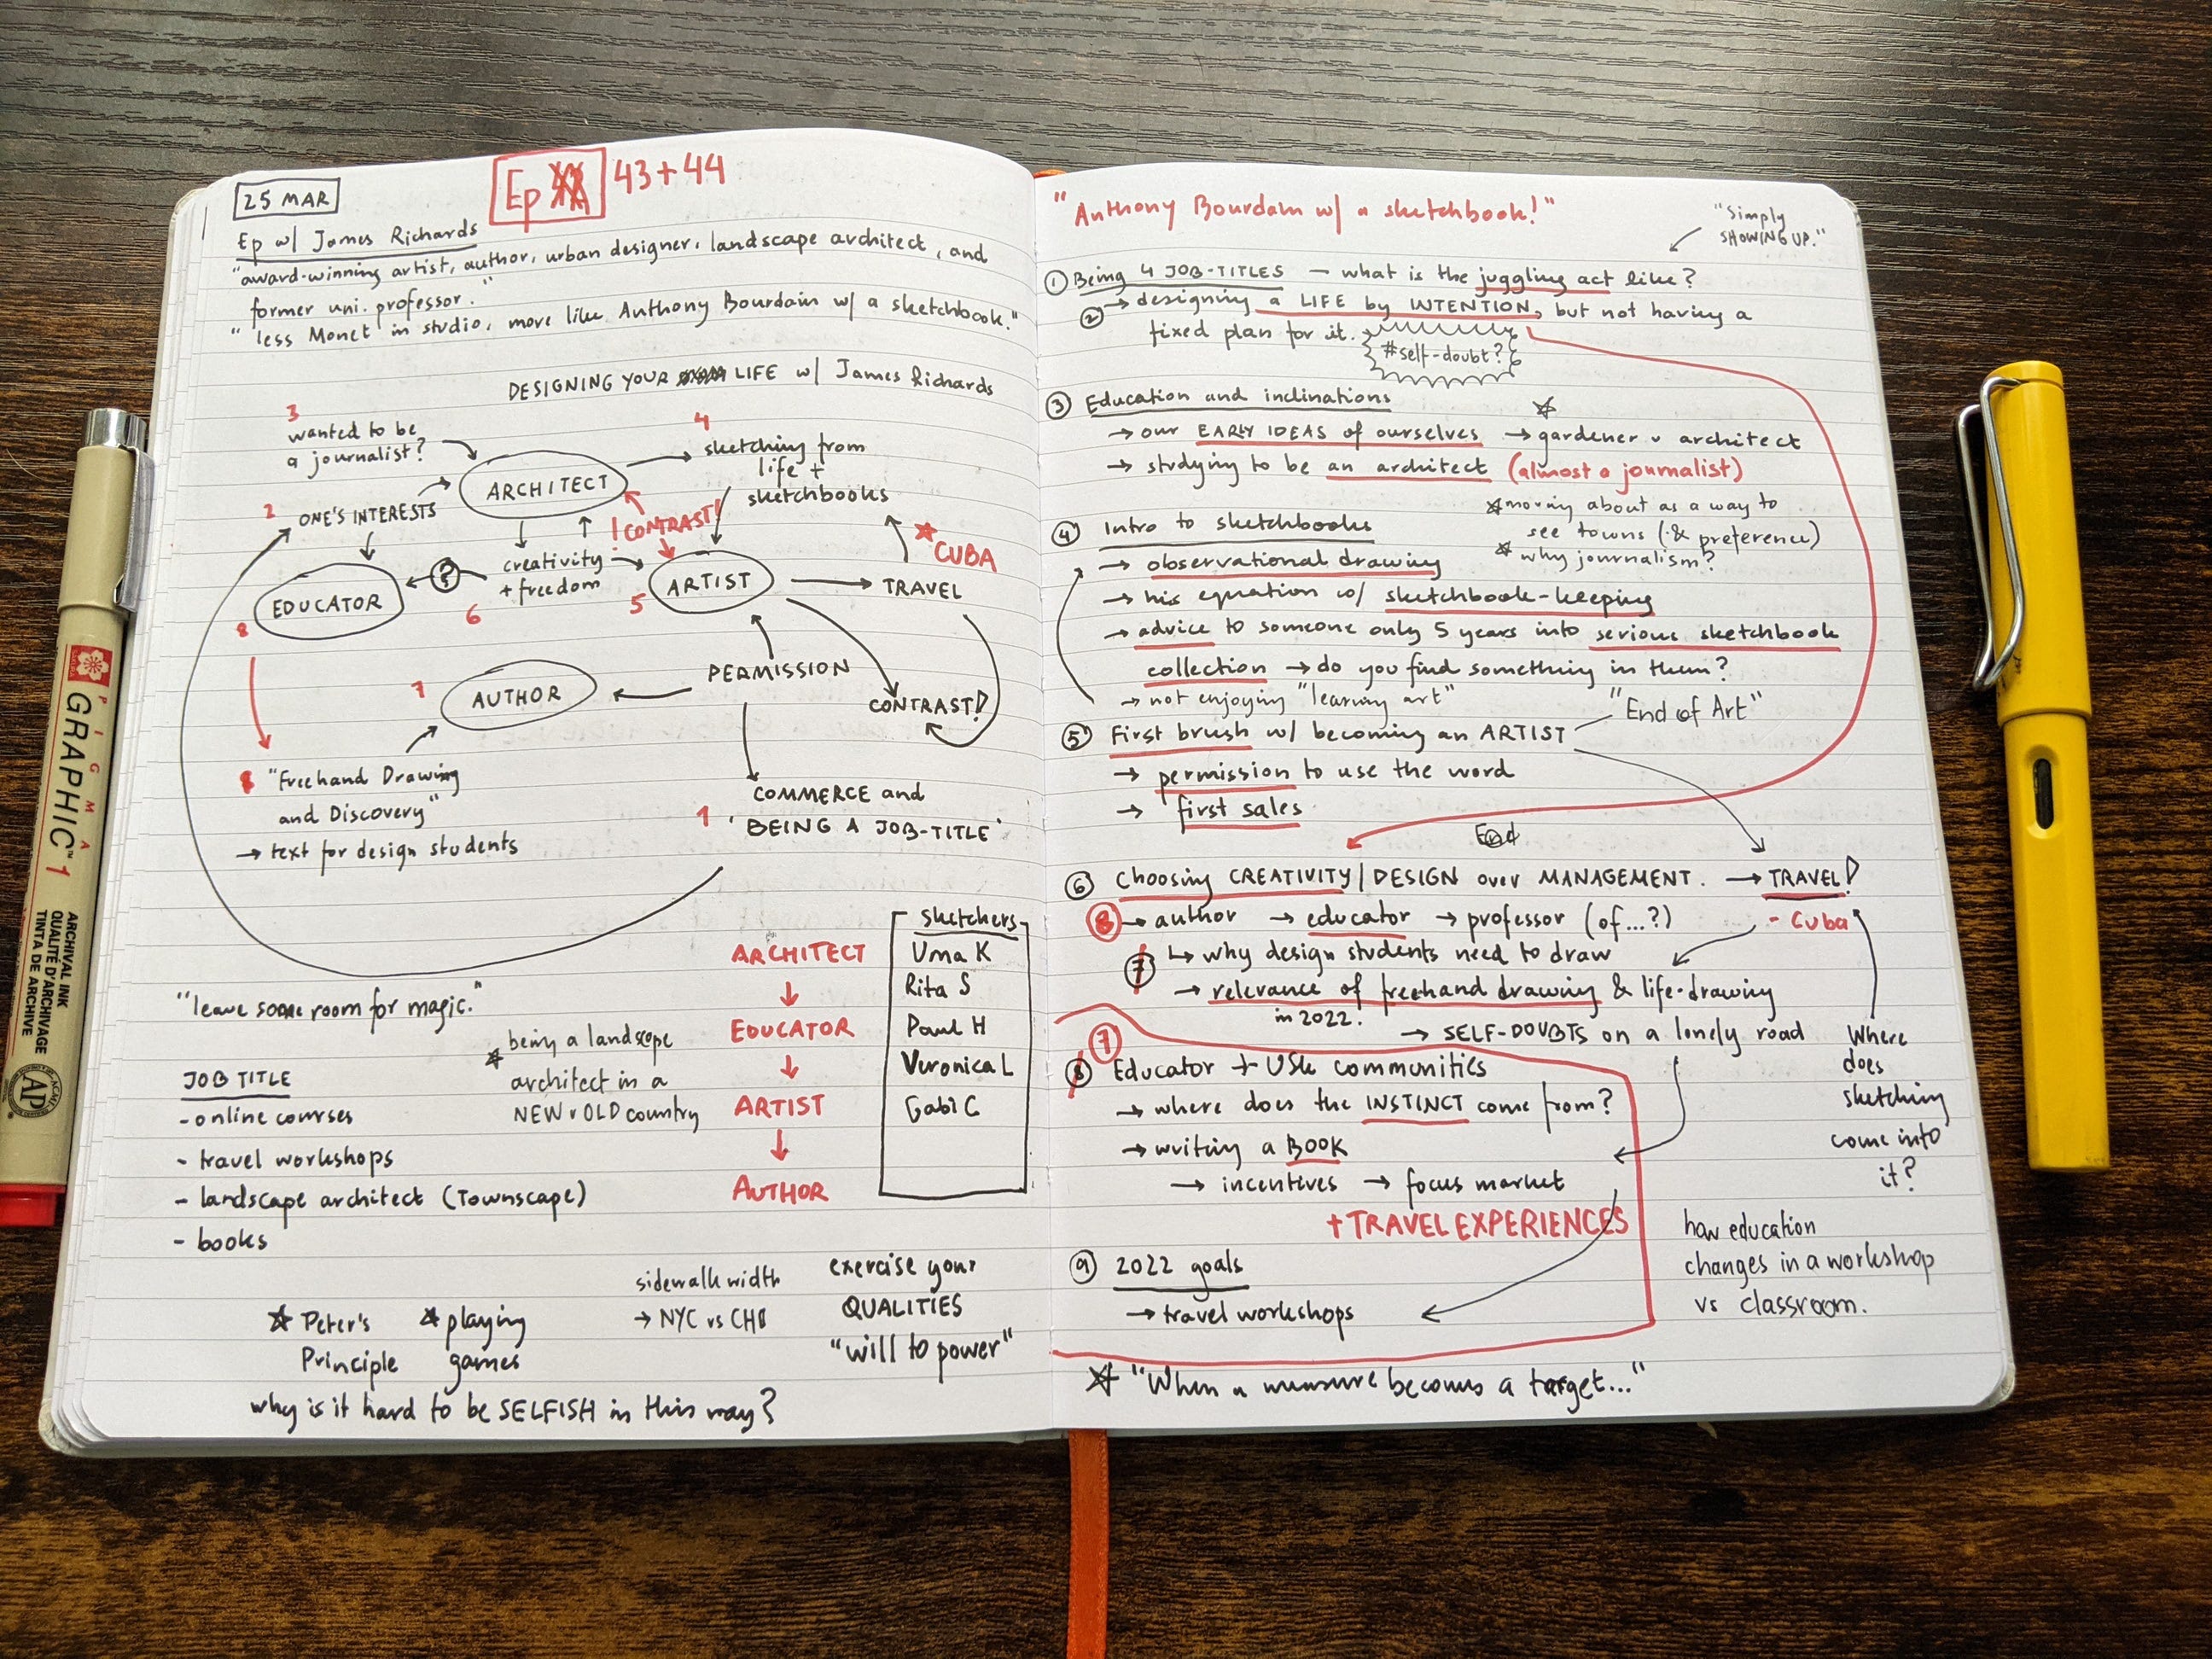 25 MAR
Ep 43+44
Ep w/ James Richards
"award-winning artist, author, urban designer, landscape architect, and
former uni. professor."
"less Monet in studio, more like Anthony Bourdain w/ a sketchbook."
DESIGNING YOUR LIFE w/ James Richards
3
wanted to be
a journalist?
4
sketching from
life +
sketchbooks
ARCHITECT
2
ONE'S INTERESTS
! CONTRAST!
CUBA
creativity
+ freedom
?
6
EDUCATOR
8
5
ARTIST
TRAVEL
PERMISSION
7
AUTHOR
CONTRAST!
"Freehand Drawing
and Discovery"
→ text for design students
1
COMMERCE and
'BEING A JOB-TITLE'
"leave some room for magic."
being a landscape
architect in a
NEW v OLD country
ARCHITECT
↓
EDUCATOR
↓
ARTIST
↓
AUTHOR
Sketchers
Uma K
Rita S
Paul H
Veronica L
Gabi C
JOB TITLE
- online courses
- travel workshops
- landscape architect (Townscape)
- books
Peter's
Principle
playing
games
sidewalk width
→ NYC vs CHD
exercise your
QUALITIES
"will to power"
why is it hard to be SELFISH in this way?
"Anthony Bourdain w/ a sketchbook!"
"Simply
SHOWING UP."
① Being 4 JOB-TITLES — what is the juggling act like?
② → designing a LIFE by INTENTION, but not having a
fixed plan for it.
#self-doubt?
③ Education and inclinations
→ our EARLY IDEAS of ourselves → gardener v architect
→ studying to be an architect (almost a journalist)
moving about as a way to
see towns (& preference)
why journalism?
④ Intro to sketchbooks
→ observational drawing
→ his equation w/ sketchbook-keeping
→ advice to someone only 5 years into serious sketchbook
collection → do you find something in them?
→ not enjoying "learning art"
"End of Art"
⑤ First brush w/ becoming an ARTIST
→ permission to use the word
→ first sales
End
⑥ Choosing CREATIVITY/DESIGN over MANAGEMENT. → TRAVEL!
- Cuba
8 → author → educator → professor (of...?)
7 ↳ why design students need to draw
→ relevance of freehand drawing & life-drawing
in 2022.
→ SELF-DOUBTS on a lonely road
Where
does
sketching
come into
it?
7
8 Educator + USk communities
→ where does the INSTINCT come from?
→ writing a BOOK
→ incentives → focus market
+ TRAVEL EXPERIENCES
⑨ 2022 goals
→ travel workshops
how education
changes in a workshop
vs classroom.
"When a measure becomes a target..."
PIGMA
GRAPHIC™ 1
ARCHIVAL INK
QUALITÉ D'ARCHIVAGE
TINTA DE ARCHIVE
AP